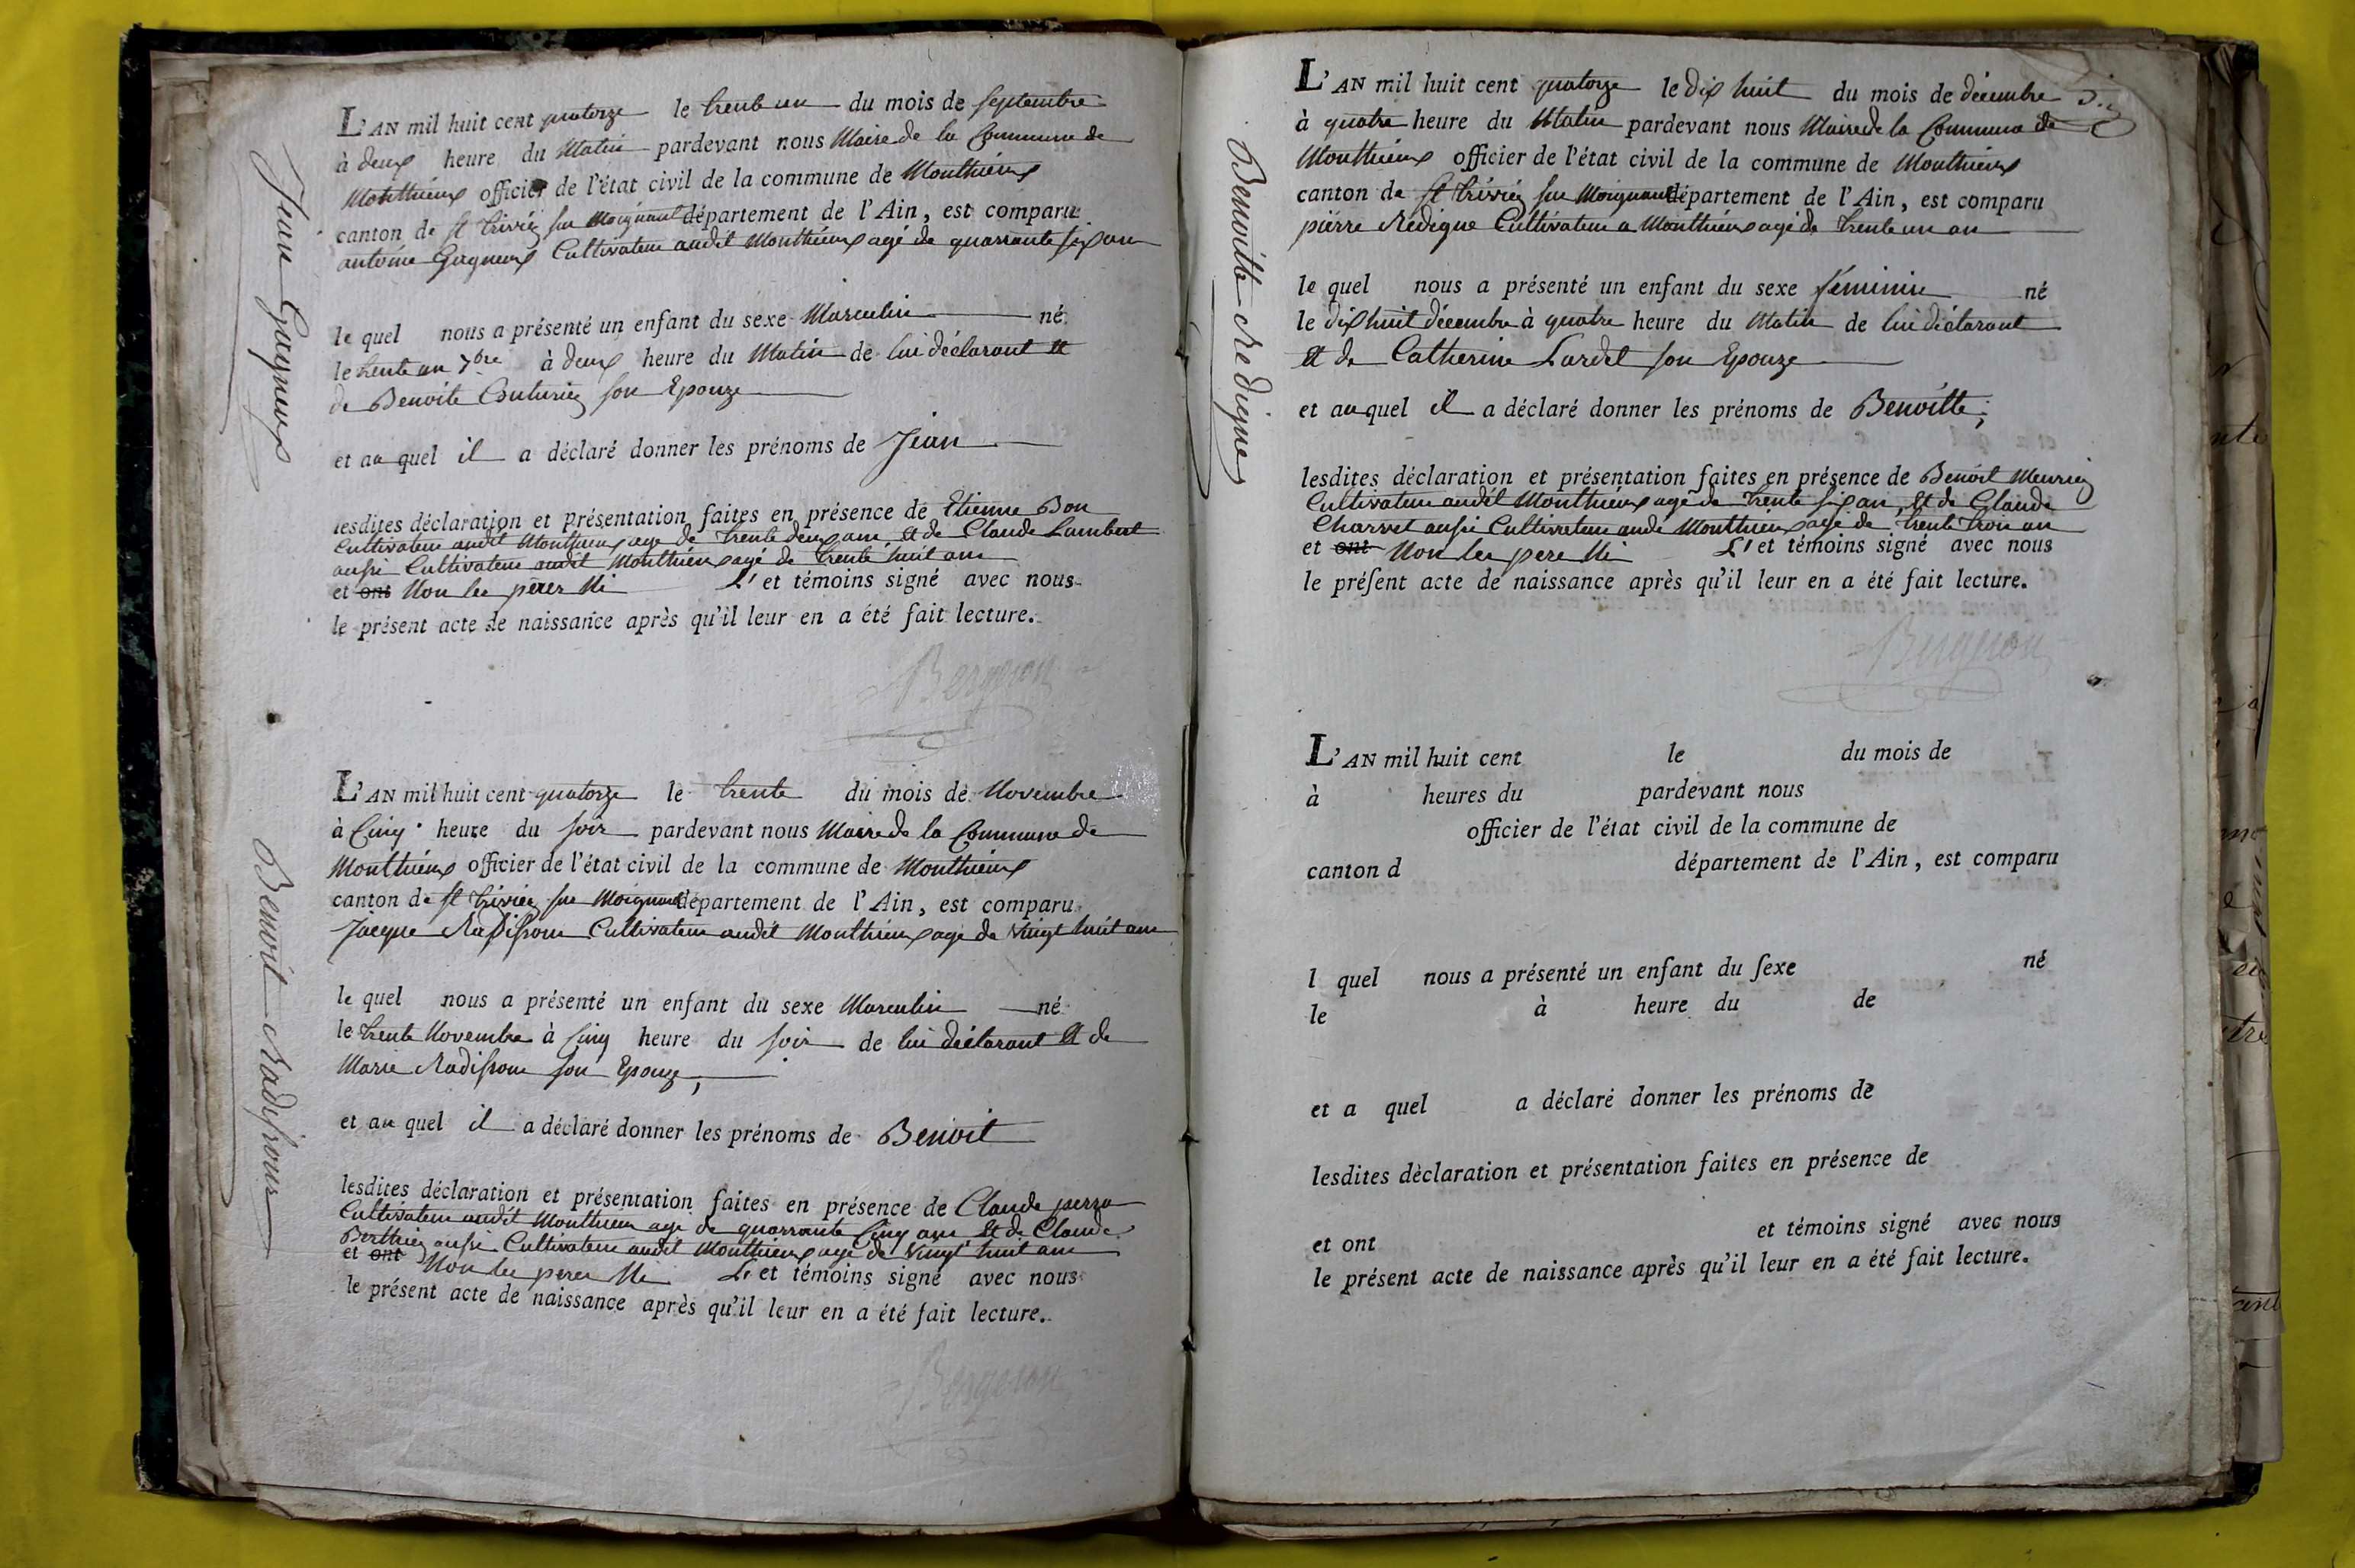 Jean Gagneux
L'AN mil huit cent quatorze le trente un du mois de septembre
à deux heure du Matin pardevant nous Maire de la Commune de
Monthieux officier de l'état civil de la commune de Monthieux
canton de st trivier sur Moignant département de l'Ain, est comparu
antoine Gagneux Cultivateur audit Monthieux agé de quarrante six ans
le quel nous a présenté un enfant du sexe Masculin né
le trente un 7bre à deux heure du Matin de lui déclarant et
de Benoite Couturier son Epouze
et au quel il a déclaré donner les prénoms de Jean
lesdites déclaration et présentation faites en présence de Etienne Bon
Cultivateur audit Monthieux age de trente deux ans, et de Claude Lambert
aussi Cultivateur audit Monthieux agé de trente huit ans
et ont Non les peres Ni L's et témoins signé avec nous
le présent acte de naissance après qu'il leur en a été fait lecture.
Bergeron
Benoit Radisson
L'AN mil huit cent quatorze le trente du mois de Novembre
à Cinq heure du soir pardevant nous Maire de la Commune de
Monthieux officier de l'état civil de la commune de Monthieux
canton de st trivier sur Moignant département de l'Ain, est comparu
Jacque Radisson Cultivateur audit Monthieux age de vingt huit ans
le quel nous a présenté un enfant du sexe Masculin né
le trente Novembre à Cinq heure du soir de lui déclarant et de
Marie Radisson son Epouze,
et au quel il a déclaré donner les prénoms de Benoit
lesdites déclaration et présentation faites en présence de Claude perra
Cultivateur audit Monthieux age de quarrante Cinq ans et de Claude
Berthier aussi Cultivateur audit Monthieux age de vingt huit ans
et ont Non les peres Ni L's et témoins signé avec nous
le présent acte de naissance après qu'il leur en a été fait lecture.
Bergeron
Benoitte Redigue
L'AN mil huit cent quatorze le dix huit du mois de décembre
à quatre heure du Matin pardevant nous Maire de la Commune de
Monthieux officier de l'état civil de la commune de Monthieux
canton de st trivier sur Moignant département de l'Ain, est comparu
pierre Redigue Cultivateur a Monthieux agé de trente un an
le quel nous a présenté un enfant du sexe féminin né
le dix huit décembre à quatre heure du Matin de lui déclarant
et de Catherine Lardet son Epouze
et auquel il a déclaré donner les prénoms de Benoitte,
lesdites déclaration et présentation faites en présence de Benoit Meurier
Cultivateur audit Monthieux agé de trente six an, et de Claude
Charvet aussi Cultivateur audi Monthieux agé de trente trois an
et ont Non les pere Ni L's et témoins signé avec nous
le présent acte de naissance après qu'il leur en a été fait lecture.
Bergeron
L'AN mil huit cent le du mois de
à heures du pardevant nous
officier de l'état civil de la commune de
canton d département de l'Ain, est comparu
l quel nous a présenté un enfant du sexe né
le à heure du de
et a quel a déclaré donner les prénoms de
lesdites dèclaration et présentation faites en présence de
et ont et témoins signé avec nous
le présent acte de naissance après qu'il leur en a été fait lecture.